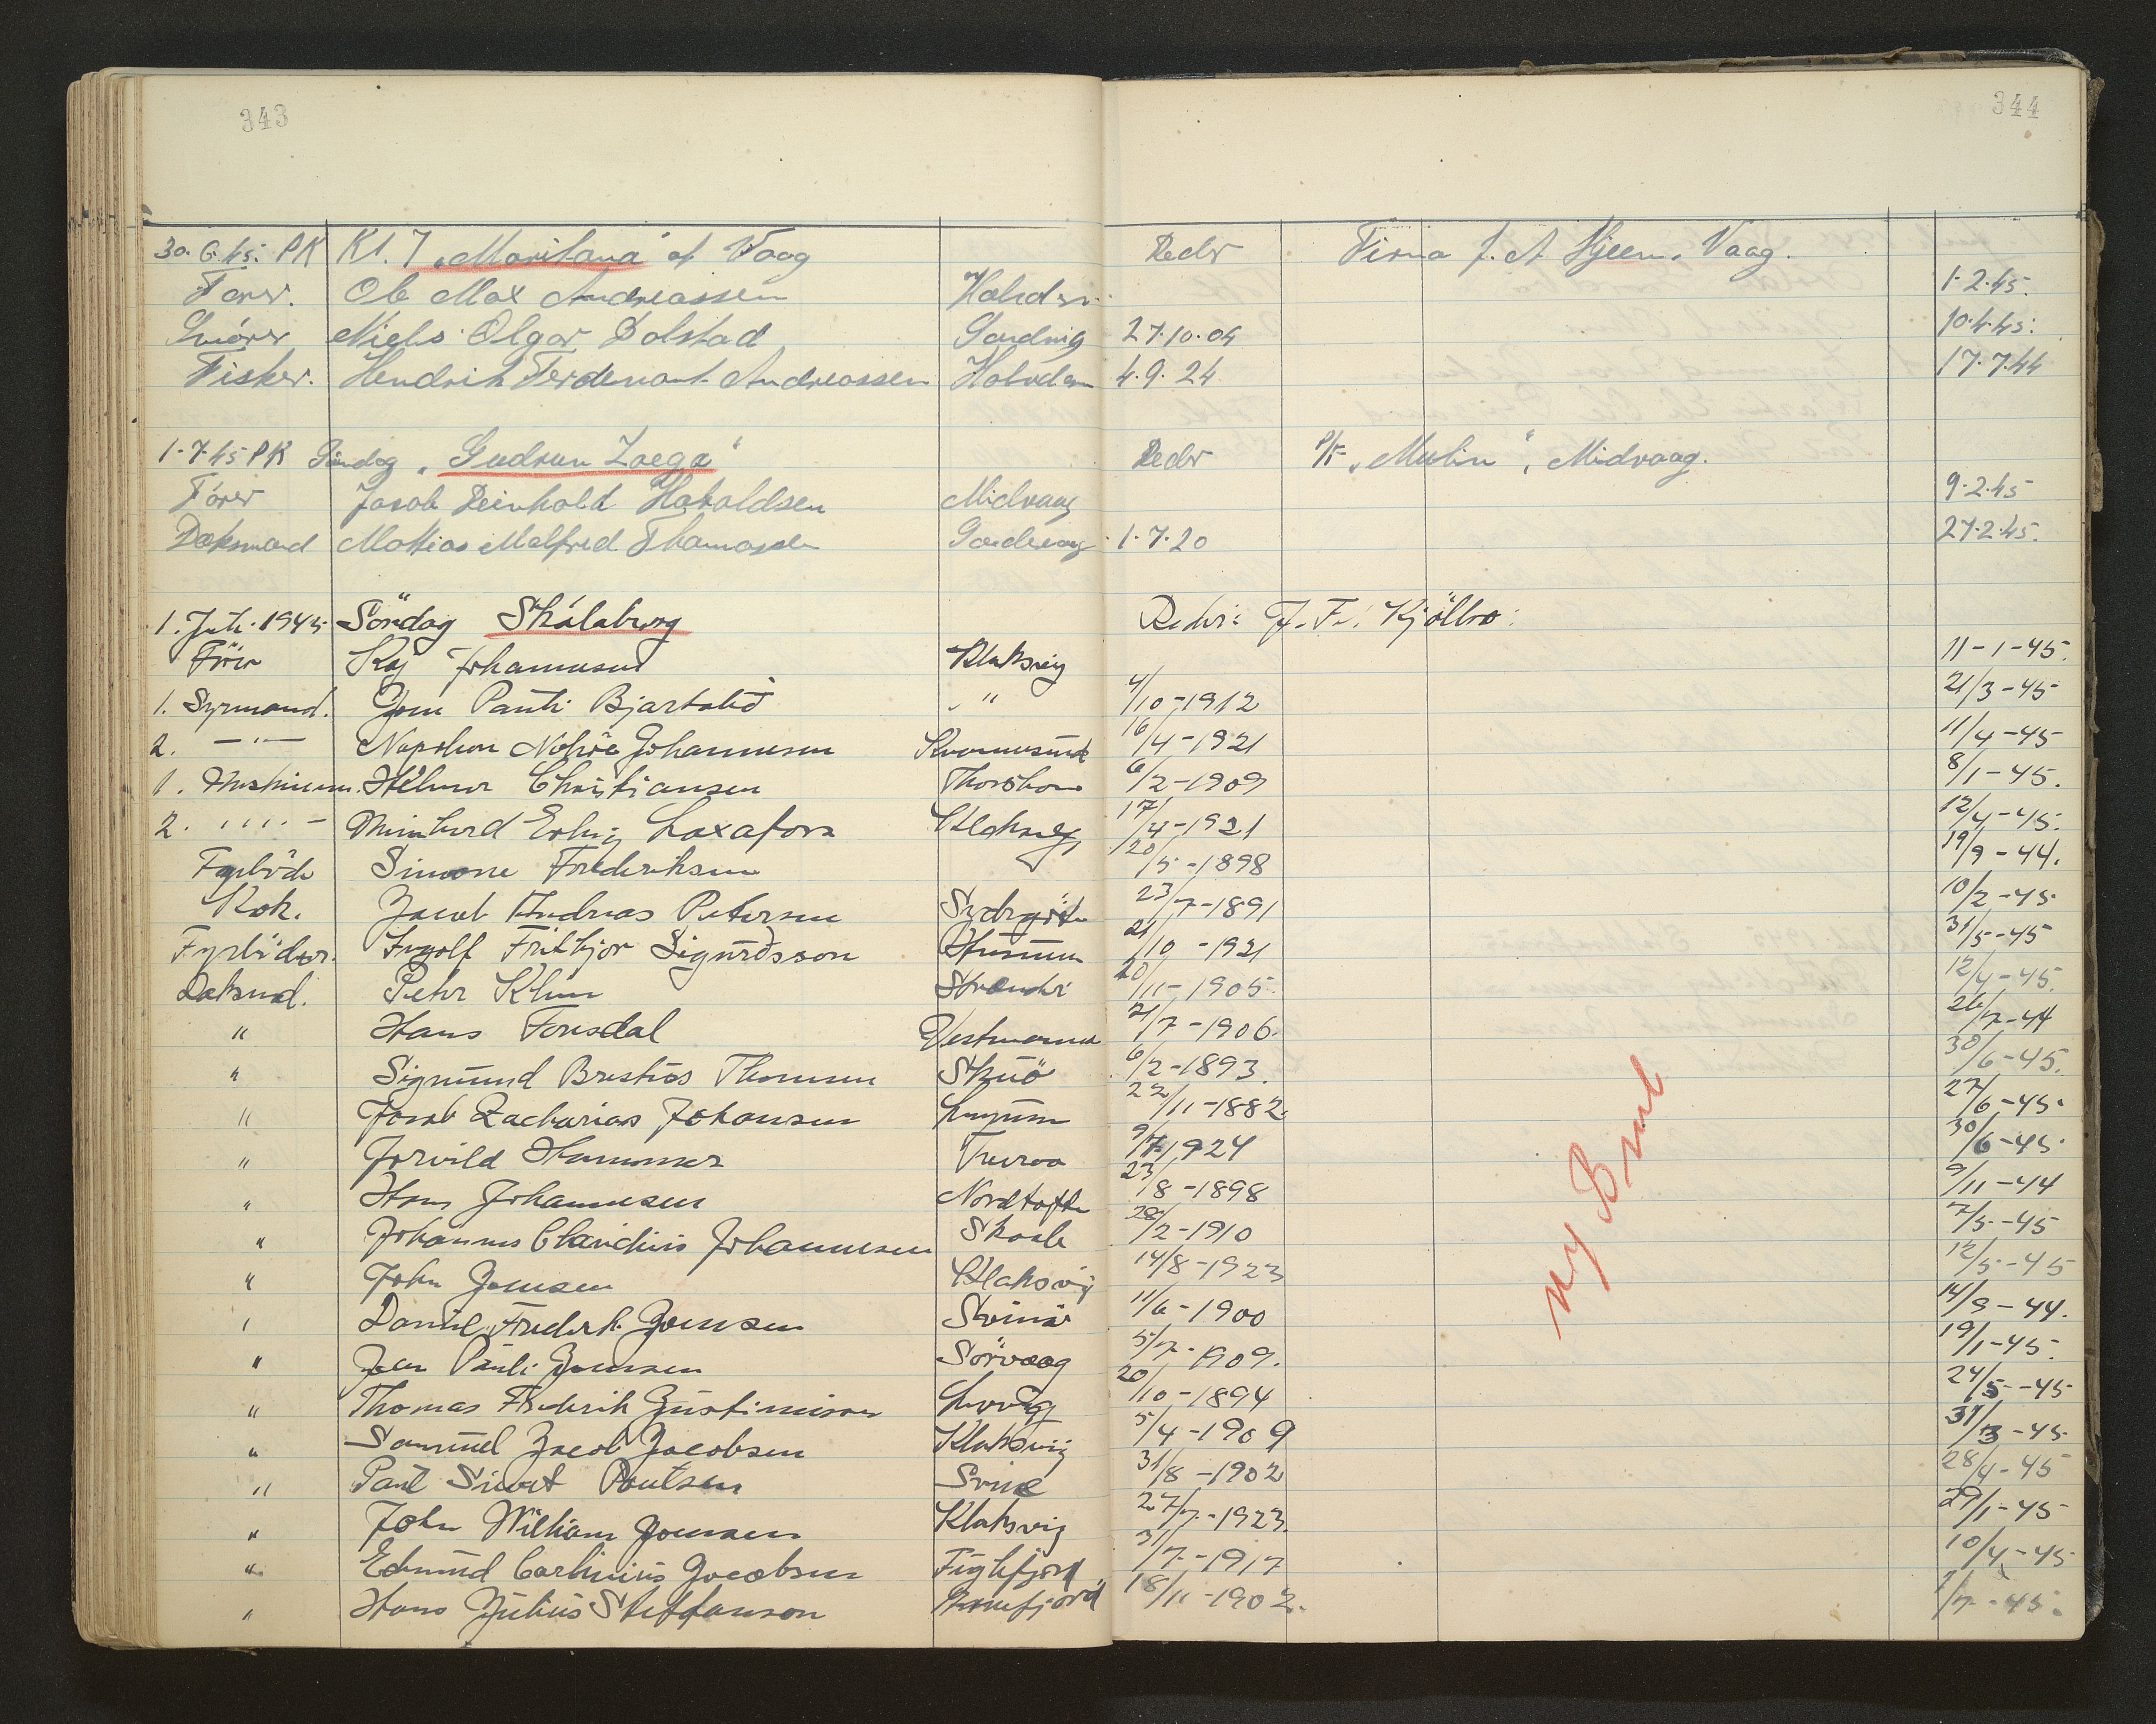 343
344
30.6.45. PK Kl. 7 „Maritana" af Vaag Reder Firma J. A Kjeem. Vaag.
Fører. Ole Max Andreassen 1.2.45.
Smörer Niels Olgar Dalstad Sandvig 27.10.04 10.4.45.
Fisker. Hendrik Ferdenant Andreassen 4.9.24 17.7.44
1-7-45 PK Søndag „Gudrun Zoega" Reder P/F „Mulin", Midvaag.
Fører Jacob Reinhold Haraldsen Midvaag 9.2.45
Dæksmand Mattias Malfred Thomassen Sandevaag 1.7.20 27.2.45.
1. Juli. 1945 Söndag Skálaberg Reder: J. F. Kjölbro.
Förer Kaj Johannesen Klaksvig 11-1-45.
1. Styrmand. Joen Pauli Bjartalid " 4/10-1912 21/3-45
2. -"- Napoleon Nolsöe Johannesen Kvannesund 16/4-1921 11/4-45
1. Maskinm. Hilmar Christiansen Thorshavn 6/2-1909 8/1-45.
2. " " - Erling Laxafoss Klaksvig 17/4-1921 12/4-45.
Fyrböder Simone Frederiksen 20/5-1898 19/9-44.
Kok. Jacob Andreas Petersen Sydrgöte 23/7-1891 10/2-45
Fyrböder. Ingolf Fritbjör Sigurdsson 21/10-1921 31/5-45
Daksmd. Peter Klein Strender 20/11-1905. 12/4-45.
" Hans Forsdal Vestmanna 21/7-1906. 26/7-44
" Sigmund Brestirs Thomsen Skuö 6/2-1893. 30/6-45.
" Jacob Zacharias Johansen 22/11-1882. 27/6-45.
" Jorvild Hammer 9/7-1924 30/6-45
" Hans Johannesen Nordtofte 23/8-1898 9/11-44
" Johannes Claudius Johannesen Skaale 28/2-1910 7/5-45
" John Joensen Klaksvig 14/8-1923 12/5-45
" Daniel Frederik Joensen 11/6-1900 14/9-44.
" Jen Pauli Joensen Sörvaag 5/7-1909. 19/1-45.
" Thomas Frederik Justinussen 20/10-1894 24/5-45
" Samuel Jacob Jacobsen Klaksvig 5/4-1909 31/3-45
" Paul Sivert Poulsen 31/8-1902 28/4-45
" John William Joensen Klaksvig 27/7-1923. 29/1-45
" Edmund Carlinius Jacobsen Fuglefjord 31/7-1917 10/4-45
" Hans Julius Steffanson 18/11-1902. 1/7-45.
ny Bmd